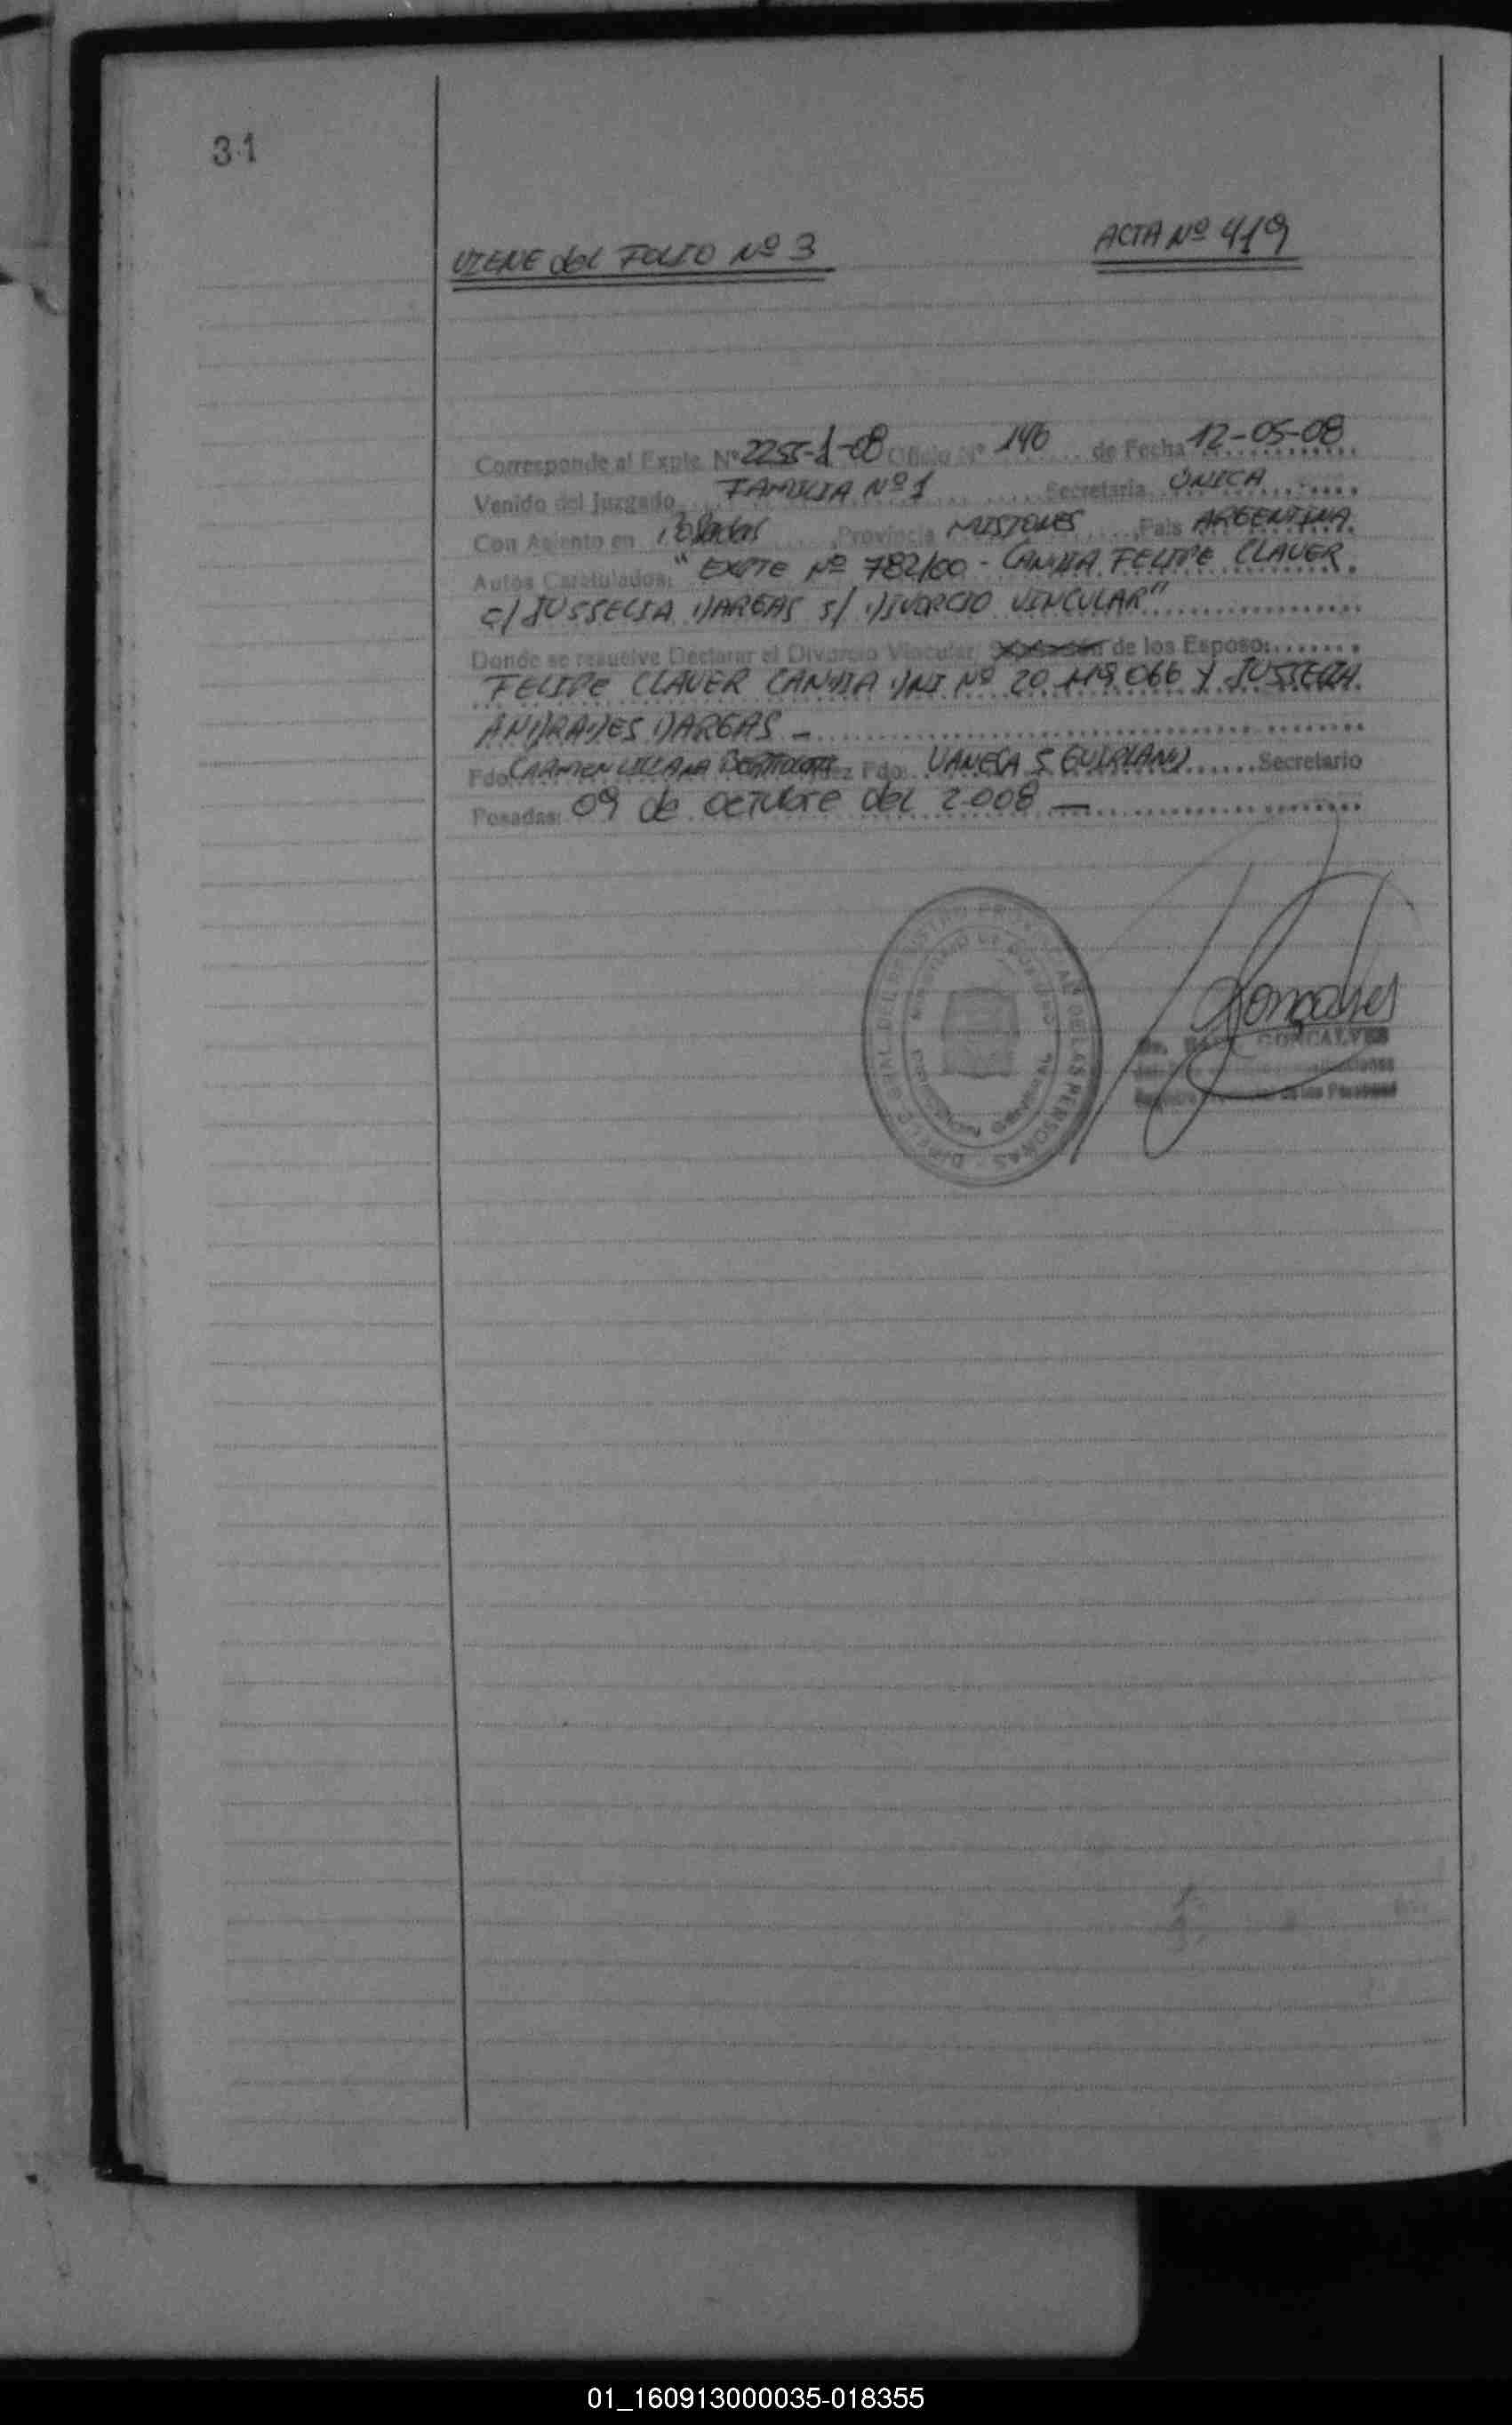 31
VIENE del FOLIO Nº 3
ACTA Nº 419
Corresponde al Expte. Nº 2255-1-08 Oficio Nº 146 de Fecha 12-05-08
Venido del Juzgado FAMILIA Nº 1 Secretaria ÚNICA
Con Asiento en Posadas Provincia MISIONES, Pais ARGENTINA.
Autos Caratulados: "EXPTE Nº 782/00 - CANDIA FELIPE CLAVER
c/ JUSSELIA VARGAS s/ DIVORCIO VINCULAR"
Donde se resuelve Declarar el Divorcio Vincular, de los Esposo:
FELIPE CLAVER CANDIA DNI Nº 20.119.066 Y JUSSELIA
ANDRADES VARGAS -
Fdo CARMEN LILIANA Juez Fdo: VANESA S. GUIRLAND Secretario
Posadas: 09 de OCTUBRE del 2008 —
REGISTRO PROVINCIAL DE LAS PERSONAS
MISIONES
Goncalves
GONCALVES
de las Personas
01_160913000035-018355